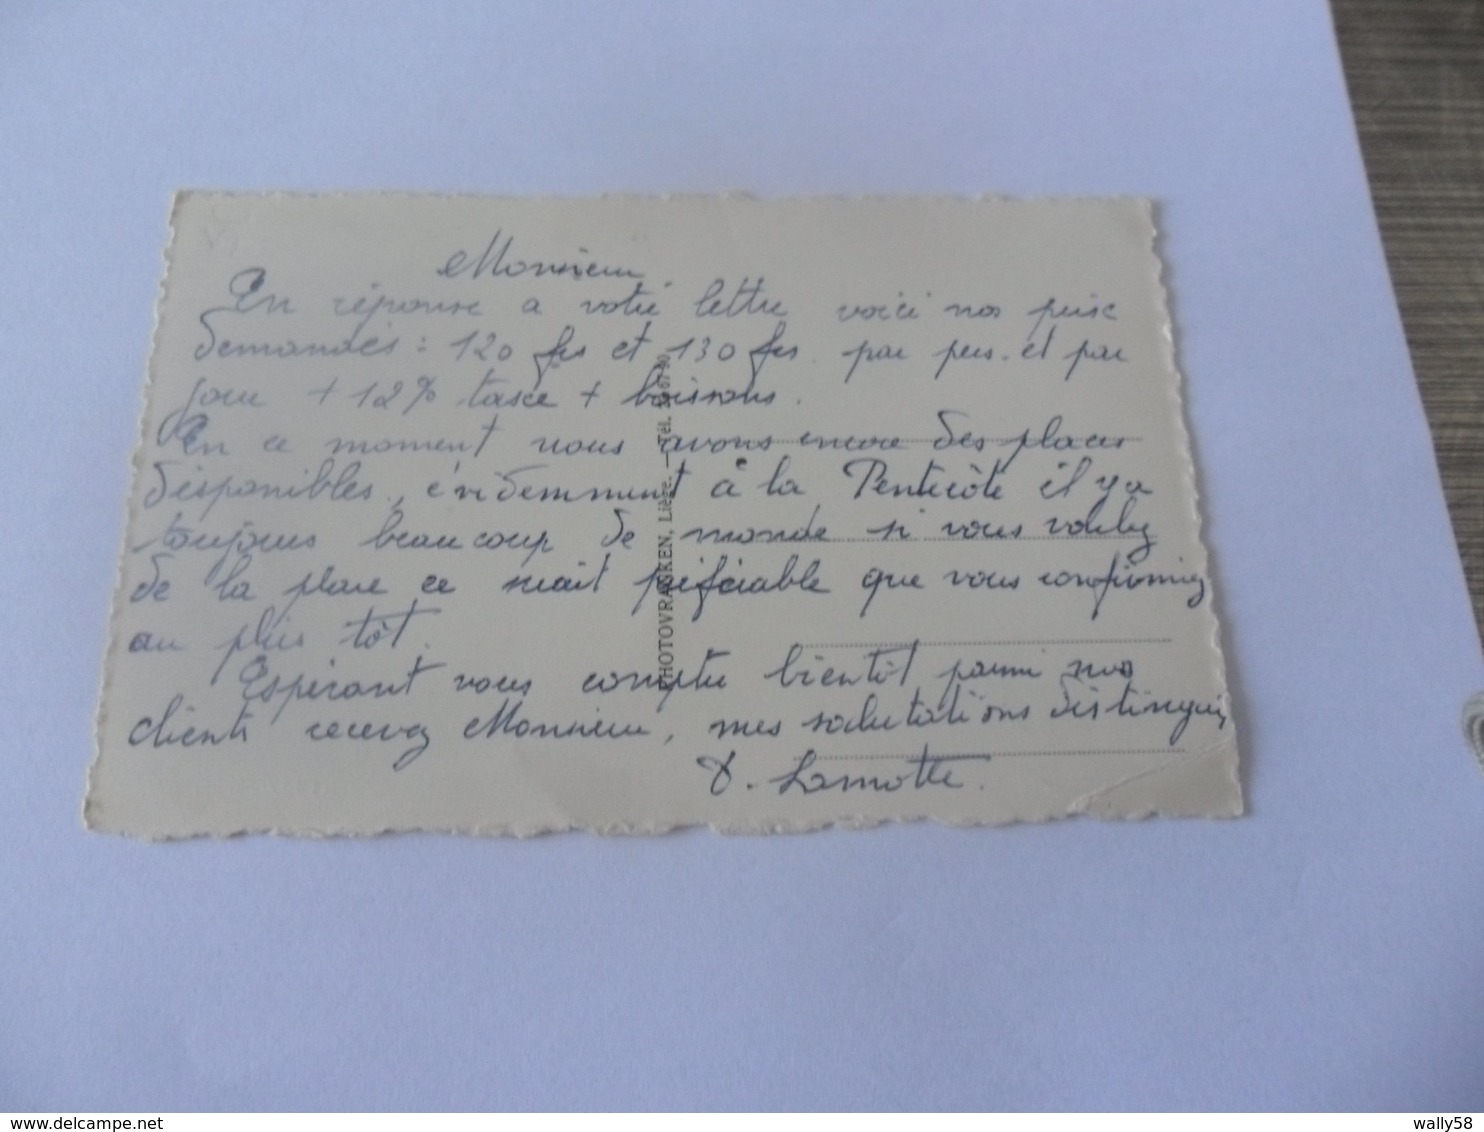 Monsieur
En réponse a votre lettre voici nos prix
demandés : 120 frs et 130 frs. par pers. et par
jour + 12% taxe + boissons.
En ce moment nous avons encore des places
disponibles, évidemment à la Pentecôte il y a
toujours beaucoup de monde si vous voulez
de la place ce serait préférable que vous confirmiez
au plus tôt.
Espérant vous compter bientôt parmi nos
clients recevez Monsieur, mes salutations distinguées
D. Lamotte.
PHOTOVRANKEN, Liège. — Tél. 67 90
delcampe.net
wally58